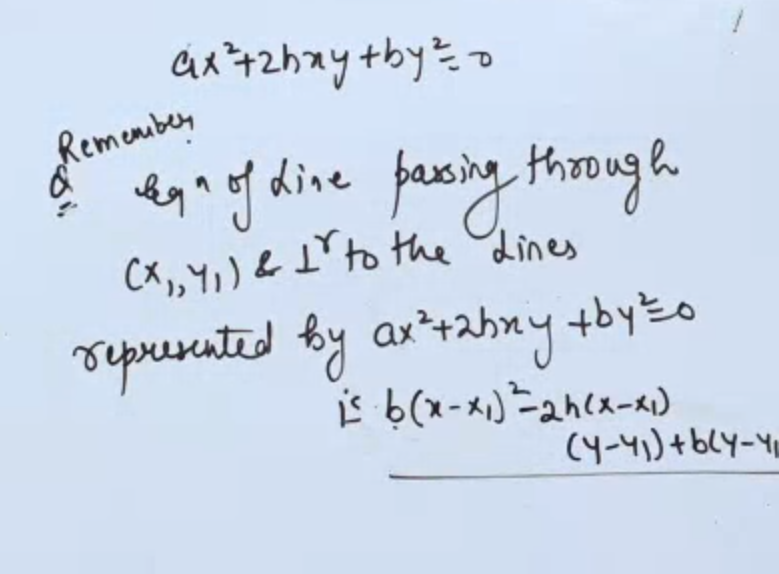 ax²+2hxy+by²=0
Remember
Q eqⁿ of Line passing through
(x₁,y₁) & ⊥ʳ to the Lines
represented by ax²+2hxy+by²=0
is b(x-x₁)²-2h(x-x₁)
(y-y₁)+b(y-y₁